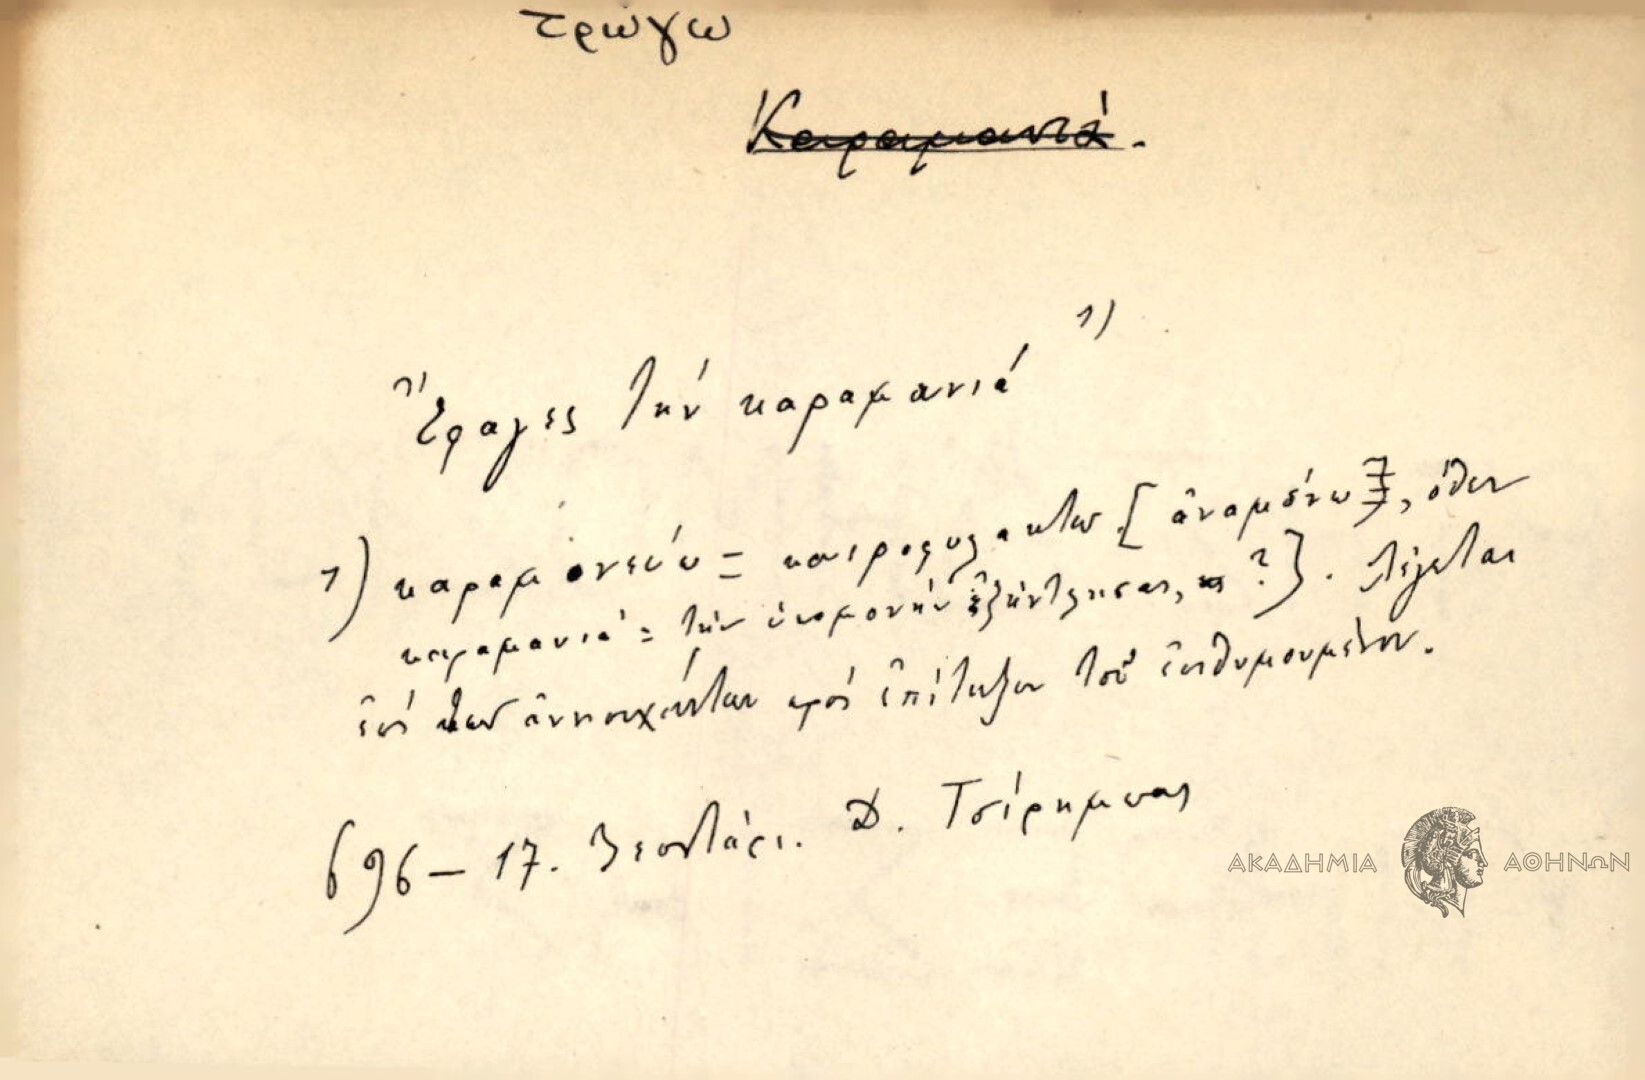 τρώγω
Καραμανιά.
Ἔφαγες τήν καραμανιά 1)
1) καραμονεύω = καιροφυλακτῶ [ἀναμένω], ὅθεν
καραμανιά = τήν ὑπομονήν ἐξήντλησας, ?]. Λέγεται
ἐπί τῶν ἀνησυχούντων πρός ἐπίτευξιν τοῦ ἐπιθυμουμένου.
696 – 17. Βεστάρι. Δ. Τσίρημπας
ΑΚΑΔΗΜΙΑ ΑΘΗΝΩΝ